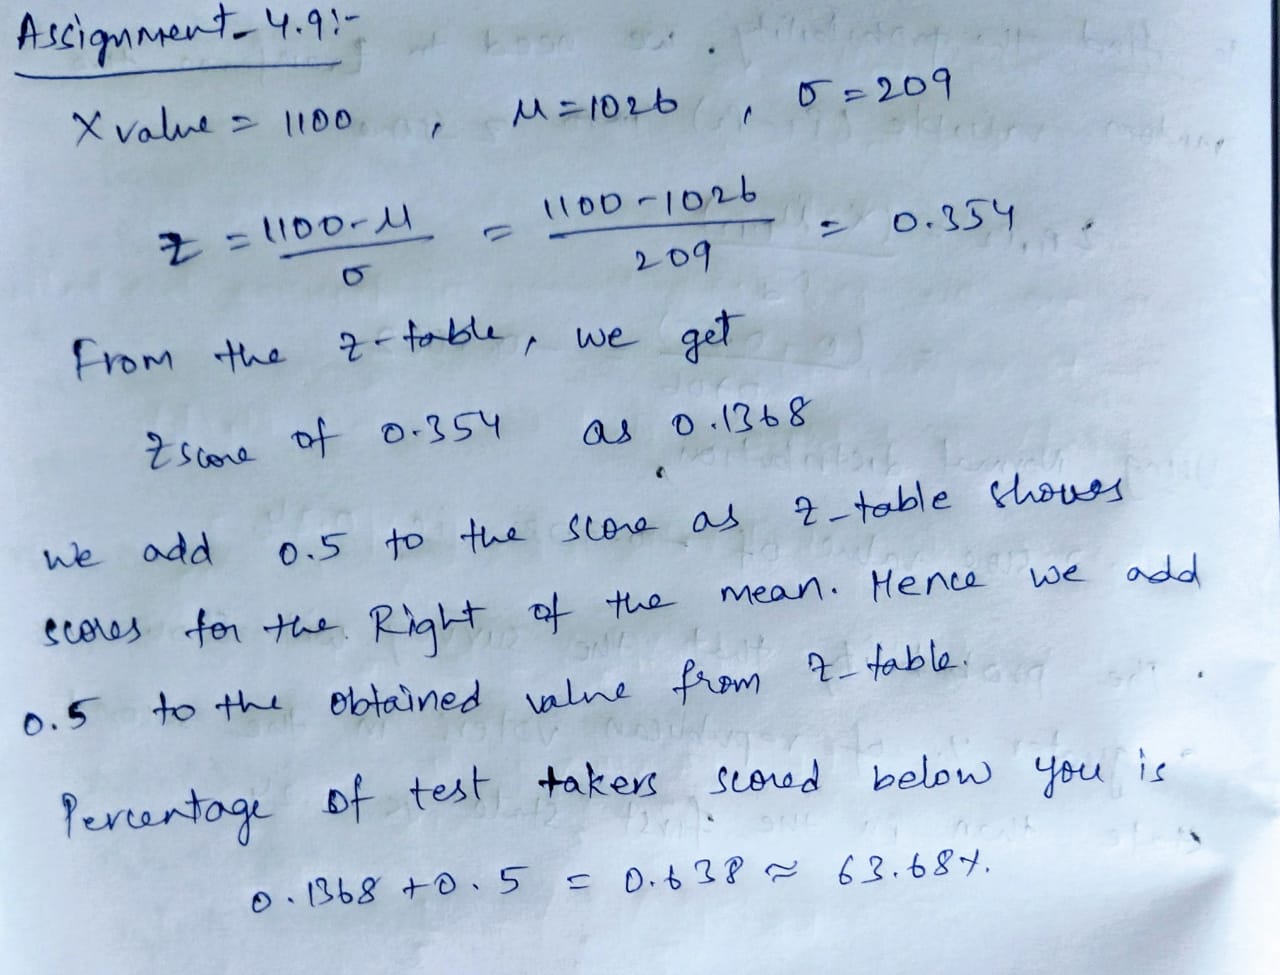 Assignment-4.9:-
X value = 1100 , μ = 1026 , σ = 209
z = 1100-μ / σ = 1100-1026 / 209 = 0.354
From the z-table, we get
Z score of 0.354 as 0.1368
we add 0.5 to the score as z-table shows
scores for the Right of the mean. Hence we add
0.5 to the obtained value from z-table.
Percentage of test takers scored below you is
0.1368 + 0.5 = 0.638 ≈ 63.68%.